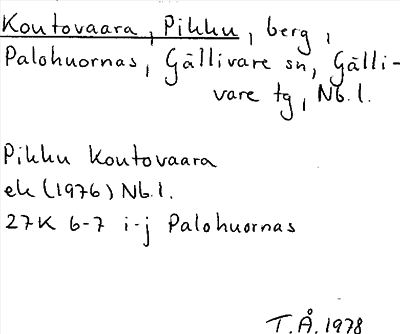 Koutovaara, Pikku, berg,
Palohuornas, Gällivare sn, Gälli-
vare tg, Nb. l.
Pikku Koutovaara
ek (1976) Nb. l.
27K 6-7 i-j Palohuornas
T.Å. 1978